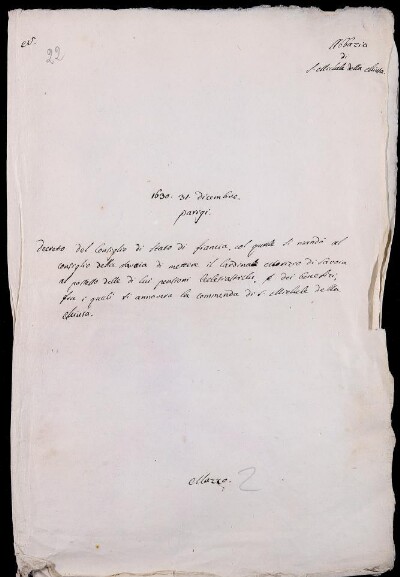 N.
22
Abbazia
di
S. Michele della Chiusa.
1630. 31. Dicembre.
Parigi.
Decreto del Consiglio di Stato di Francia, col quale si manda al
Consiglio della Savoia di mettere il Cardinale Maurizio di Savoia
al possesso delle di lui pensioni Ecclesiastiche, e dei benefizi,
fra i quali si annovera la commenda di S. Michele della
Chiusa.
Mazzo. 2